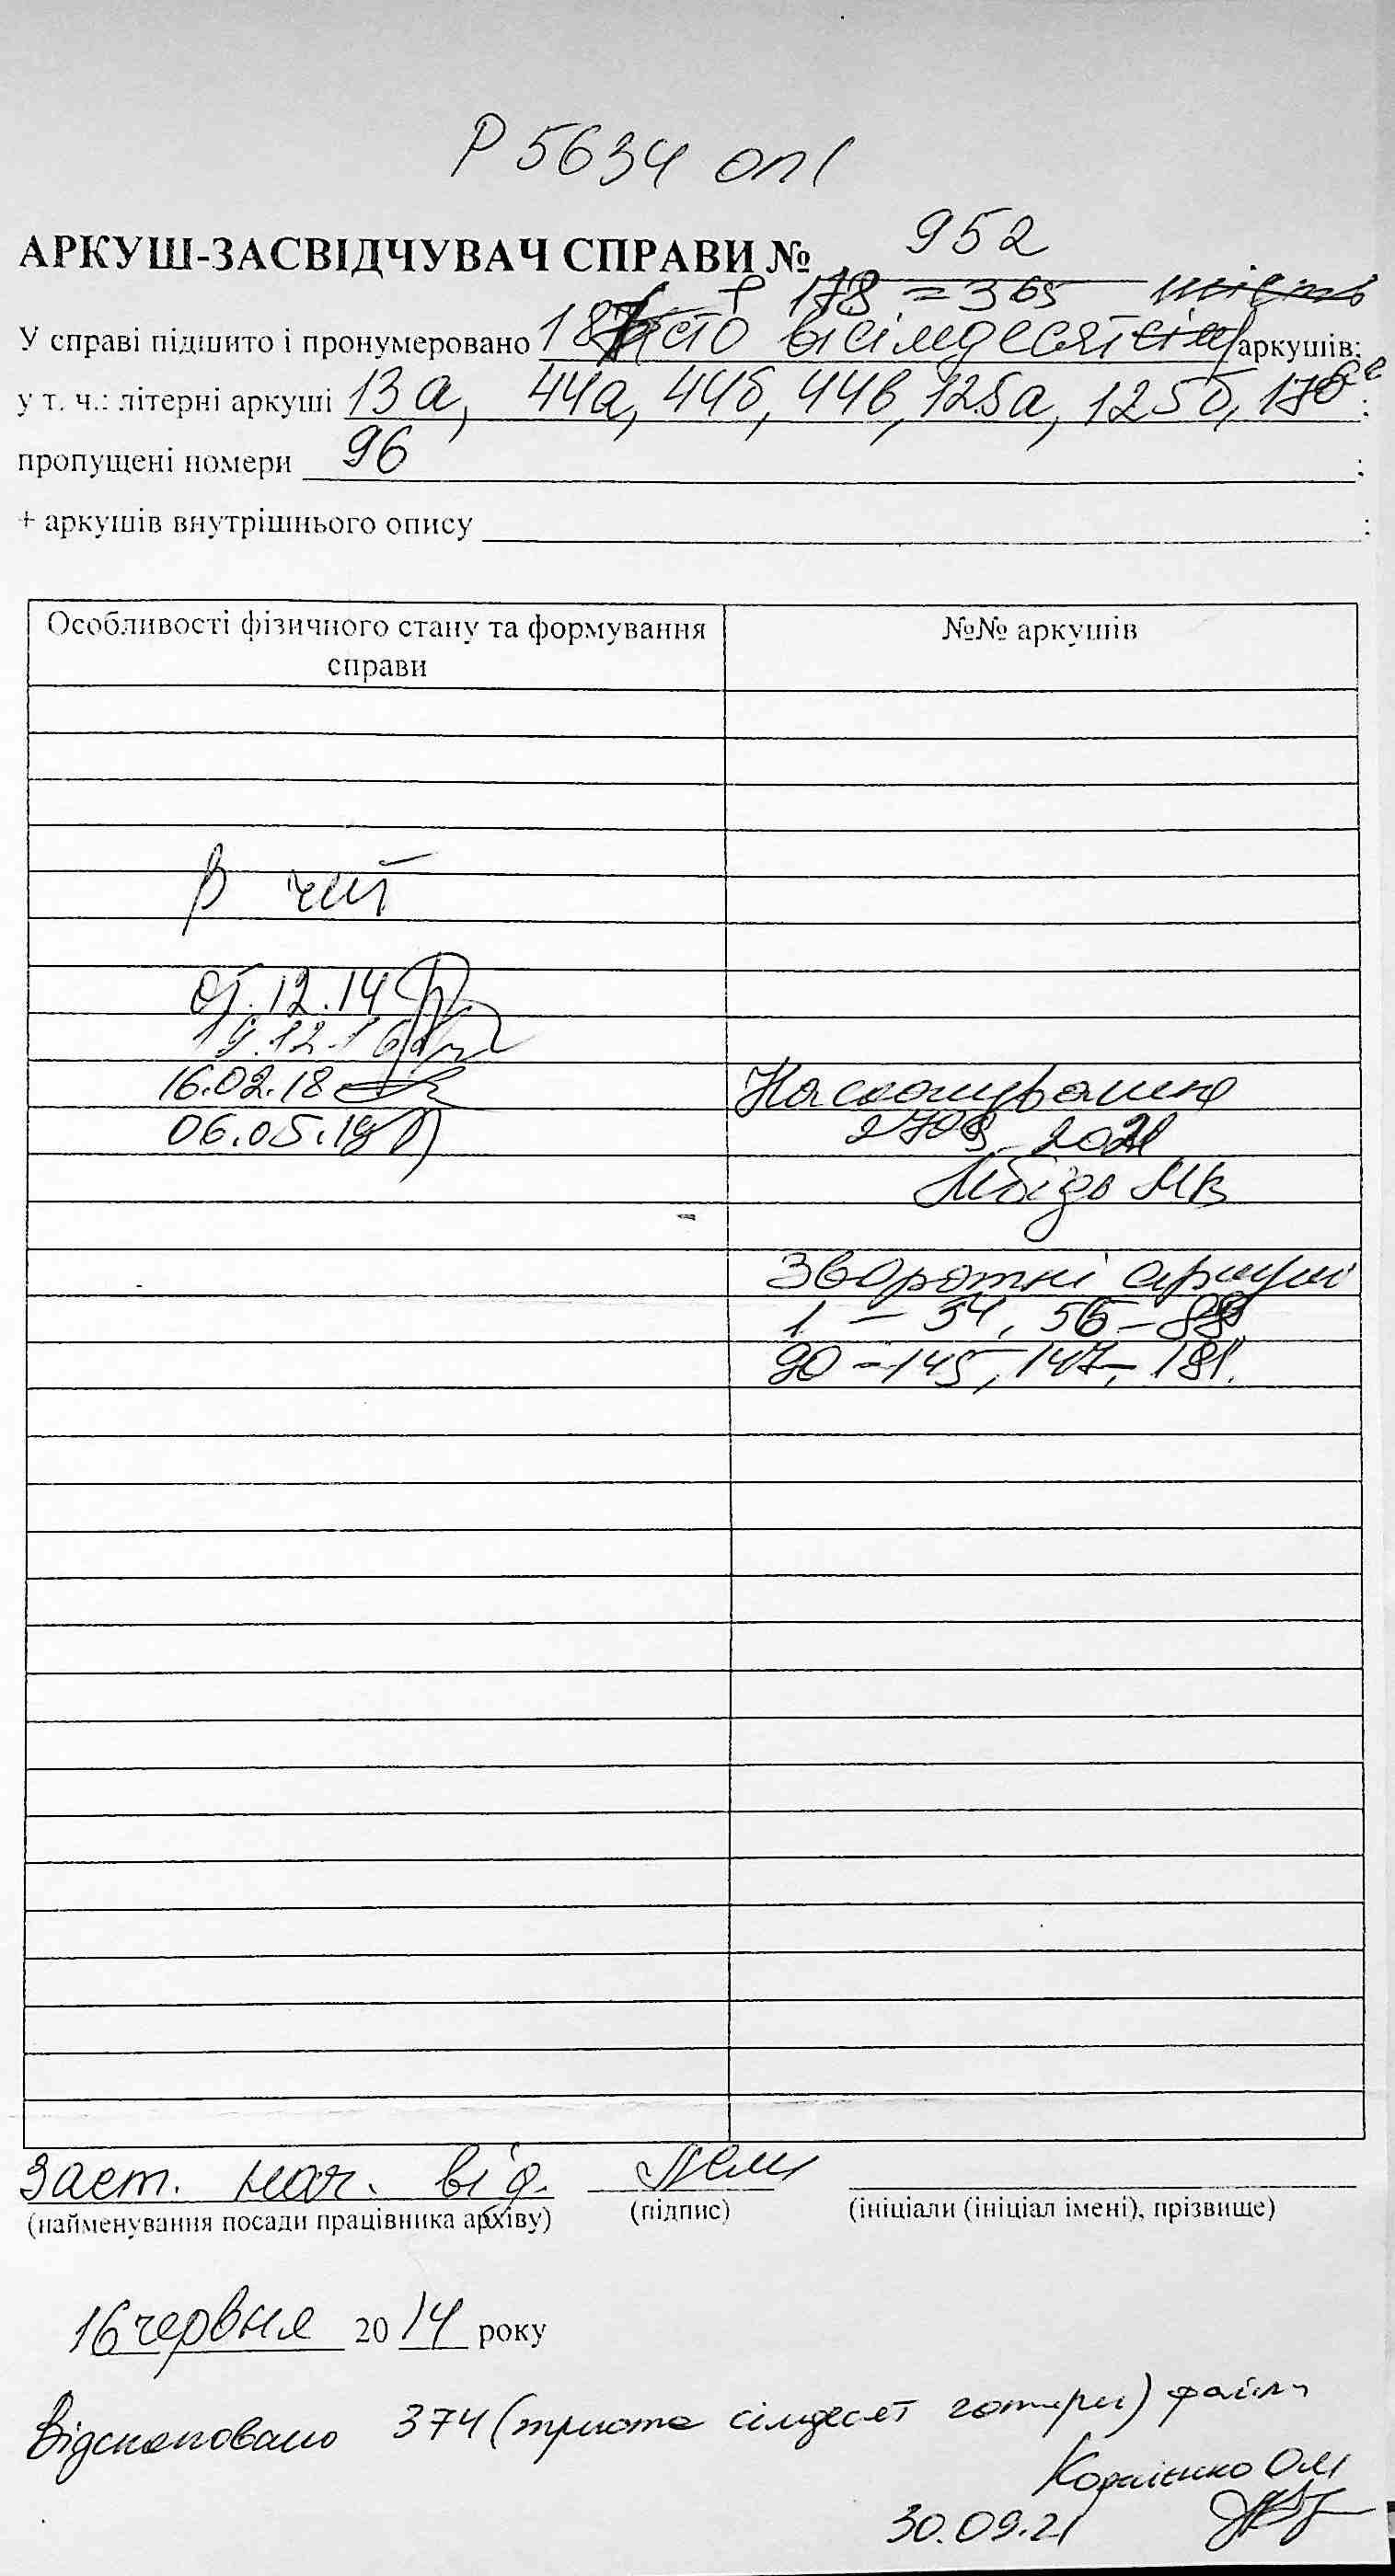 Р 5634 оп1
АРКУШ-ЗАСВІДЧУВАЧ СПРАВИ № 952
+ 178 = 365 шість
У справі підшито і пронумеровано 187 (сто вісімдесят сім) аркушів;
у т. ч.: літерні аркуші 13а, 44а, 44б, 44в, 125а, 125б, 176а;
пропущені номери 96;
+ аркушів внутрішнього опису ;
Особливості фізичного стану та формування справи
№№ аркушів
В чит
05.12.14
19.12.16
16.02.18
06.05.19
На сканування
2709 2021
МВ
Зворотні аркуші
1 – 54, 56 – 88,
90 – 145, 147 – 181.
Заст. нач. від.
(найменування посади працівника архіву) (підпис) (ініціали (ініціал імені), прізвище)
16 червня 2014 року
Відскановано 374 (триста сімдесят чотири) файли
Корнієнко ОМ
30.09.21